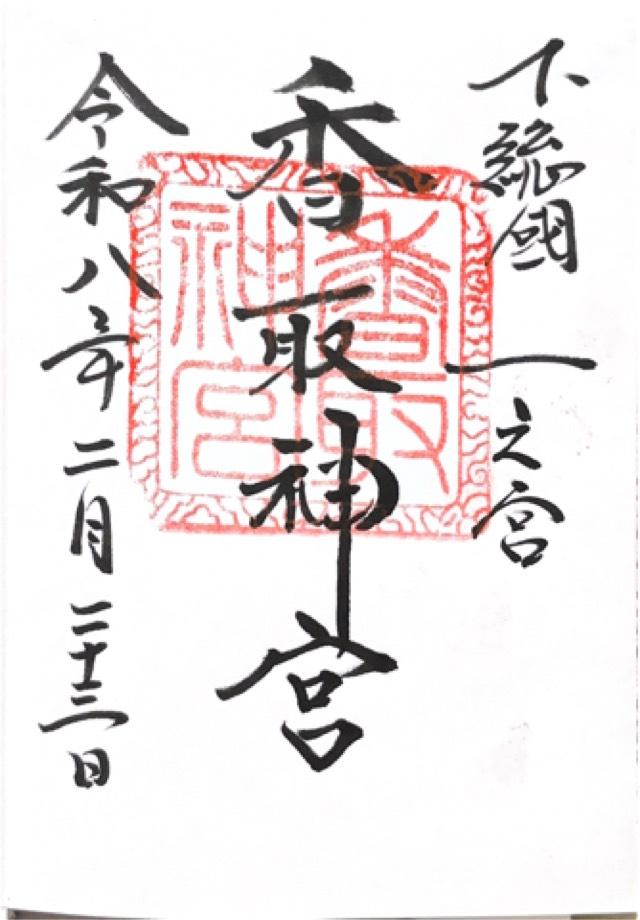 下総國一之宮
香取神宮
香取神宮
令和八年二月二十三日